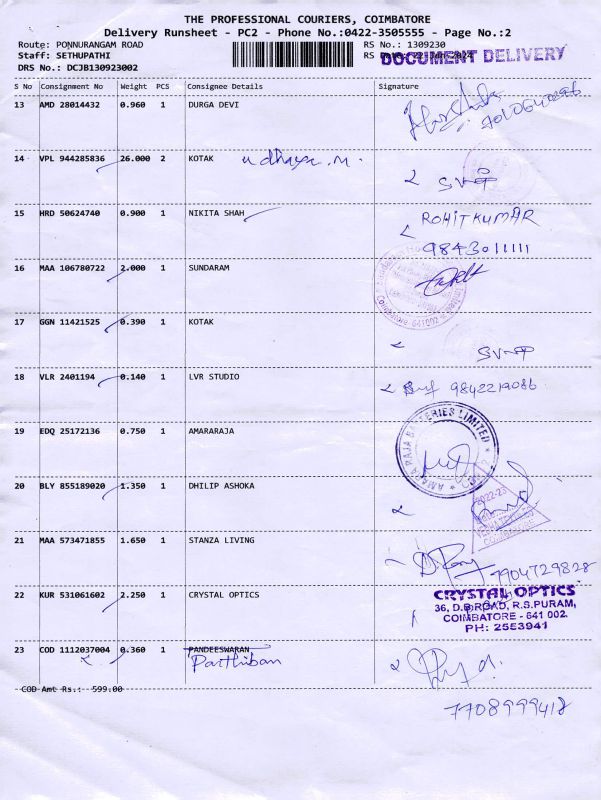 THE PROFESSIONAL COURIERS, COIMBATORE
Delivery Runsheet - PC2 - Phone No.:0422-3505555 - Page No.:2
Route: PONNURANGAM ROAD RS No.: 1309230
Staff: SETHUPATHI RS DOCUMENT DELIVERY
DRS No.: DCJB130923002
S No Consignment No Weight PCS Consignee Details Signature
13 AMD 28014432 0.960 1 DURGA DEVI
14 VPL 944285836 26.000 2 KOTAK udhaya.m.
15 HRD 50624740 0.900 1 NIKITA SHAH ROHITKUMAR
9843011111
16 MAA 106780722 2.000 1 SUNDARAM
Coimbatore 641002
17 GGN 11421525 0.390 1 KOTAK
18 VLR 2401194 0.140 1 LVR STUDIO 9842219086
19 EDQ 25172136 0.750 1 AMARARAJA AMARA RAJA BATTERIES LIMITED
20 BLY 855189020 1.350 1 DHILIP ASHOKA 2022-23
COIMBATORE
21 MAA 573471855 1.650 1 STANZA LIVING 7904729828
22 KUR 531061602 2.250 1 CRYSTAL OPTICS CRYSTAL OPTICS
36, D.B.ROAD, R.S.PURAM,
COIMBATORE - 641 002.
PH: 2553941
23 COD 1112037004 0.360 1 PANDEESWARAN
Parthiban
COD Amt Rs.: 599.00
7708999418